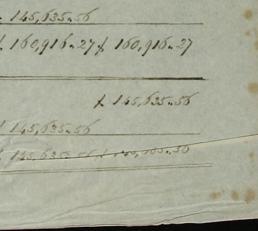 145,635.56
£ 160,916.27 £ 160,916.27
£ 145,635.56
£ 145,635.56
£ 145,635.56 £